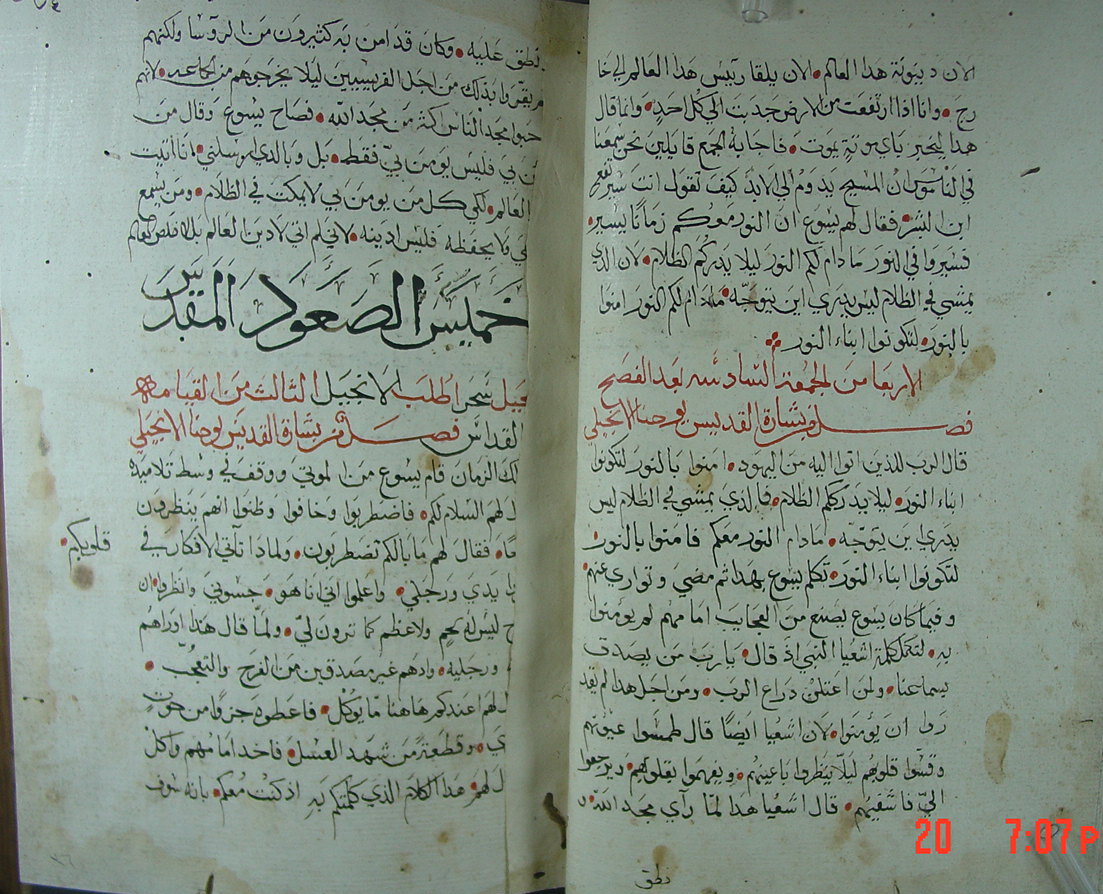 الان دينونة هذا العالم • الان يلقا رييس هذا العالم الي خا
رج • وانا اذا ارتفعت من الارض جدبت الي كل احد • وانما قال
هدا ليخبر باي موتة يموت • فاجابه الجمع قايلين نحن سمعنا
في الناموس ان المسيح يدوم الي الابد كيف تقول انت سيرتفع
ابن البشر • فقال لهم يسوع ان النور معكم زمانا يسير •
فسيروا في النور ما دام لكم النور ليلا يدرككم الظلام • لان الدي
يمشي في الظلام ليس يدري اين يتوجه • مادام لكم النور امنوا
بالنور • لتكونوا ابناء النور
الاربعا من الجمعة السادسه بعد الفصح
فصل من بشارة القديس يوحنا الانجيلي
قال الرب للذين اتوا اليه من اليهود • امنوا بالنور لتكونوا
ابناء النور • ليلا يدرككم الظلام • فالذي يمشي في الظلام ليس
يدري اين يتوجه • مادام النور معكم فامنوا بالنور
لتكونوا ابناء النور • تكلم يسوع بهدا ثم مضي وتواري عنهم •
وفيما كان يسوع يصنع من العجايب امامهم لم يومنوا
به • لتكمل كلمة اشعيا النبي اذ قال • يا رب من يصدق
بسماعنا • ولمن اعتلن دراع الرب • ومن اجل هدا لم يقد
روا ان يومنوا • لان اشعيا ايضا قال طمسوا عيونهم
وقسوا قلوبهم ليلا ينظروا باعينهم • ويفهموا بقلوبهم • ويرجعوا
الي فاشفيهم • قال اشعيا هدا لما راي مجد الله • و
نطق
نطق عليه • وكان قد امن به كثيرون من الروسا ولكنهم
لم يقروا بذلك من اجل الفريسيين ليلا يخرجوهم من الجماعه • لانهم
حبوا مجد الناس اكثر من مجد الله • فصاح يسوع وقال من
بي فليس يومن بي فقط • بل وبالذي ارسلني • انا اتيت
العالم • لكي كل من يومن بي لا يمكث في الظلام • ومن يسمع
ولا يحفظه فليس ادينه • لاني لم اتي لادين العالم بل لاخلص العالم
خميس الصعود المقدس
سحر اطلب الانجيل الثالث من القيامه
القداس فصل من بشارة القديس يوحنا الانجيلي
الزمان قام يسوع من الموتي ووقف في وسط تلاميده
لهم السلام لكم • فاضطربوا وخافوا وظنوا انهم ينظرون
فقال لهم ما بالكم تضطربون • ولماذا تاتي الافكار في
قلوبكم •
يدي ورجلي • واعلموا اني انا هو • جسوني وانظروا • ان
ليس له لحم ولا عظم كما ترون لي • ولما قال هذا اوراهم
ورجليه • واد هم غير مصدقين من الفرح والتعجب •
لهم اعندكم هاهنا ما يوكل • فاعطوه جزوا من حوت
وقطعة من شهد العسل • فاخد امامهم واكل
لهم • هدا الكلام الذي كلمتكم به اذ كنت معكم • بانه سوف
20 7:07 P